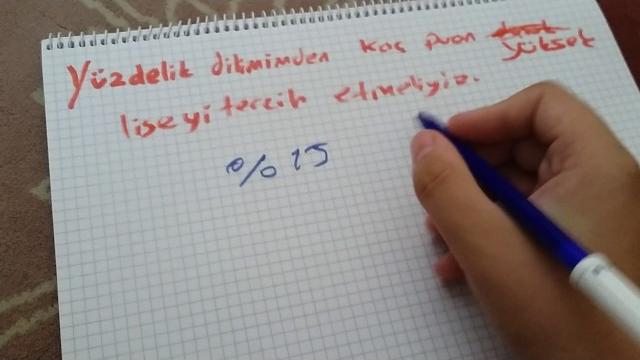 Yüzdelik diliminden kaç puan yüksek
liseyi tercih etmeliyiz.
%15